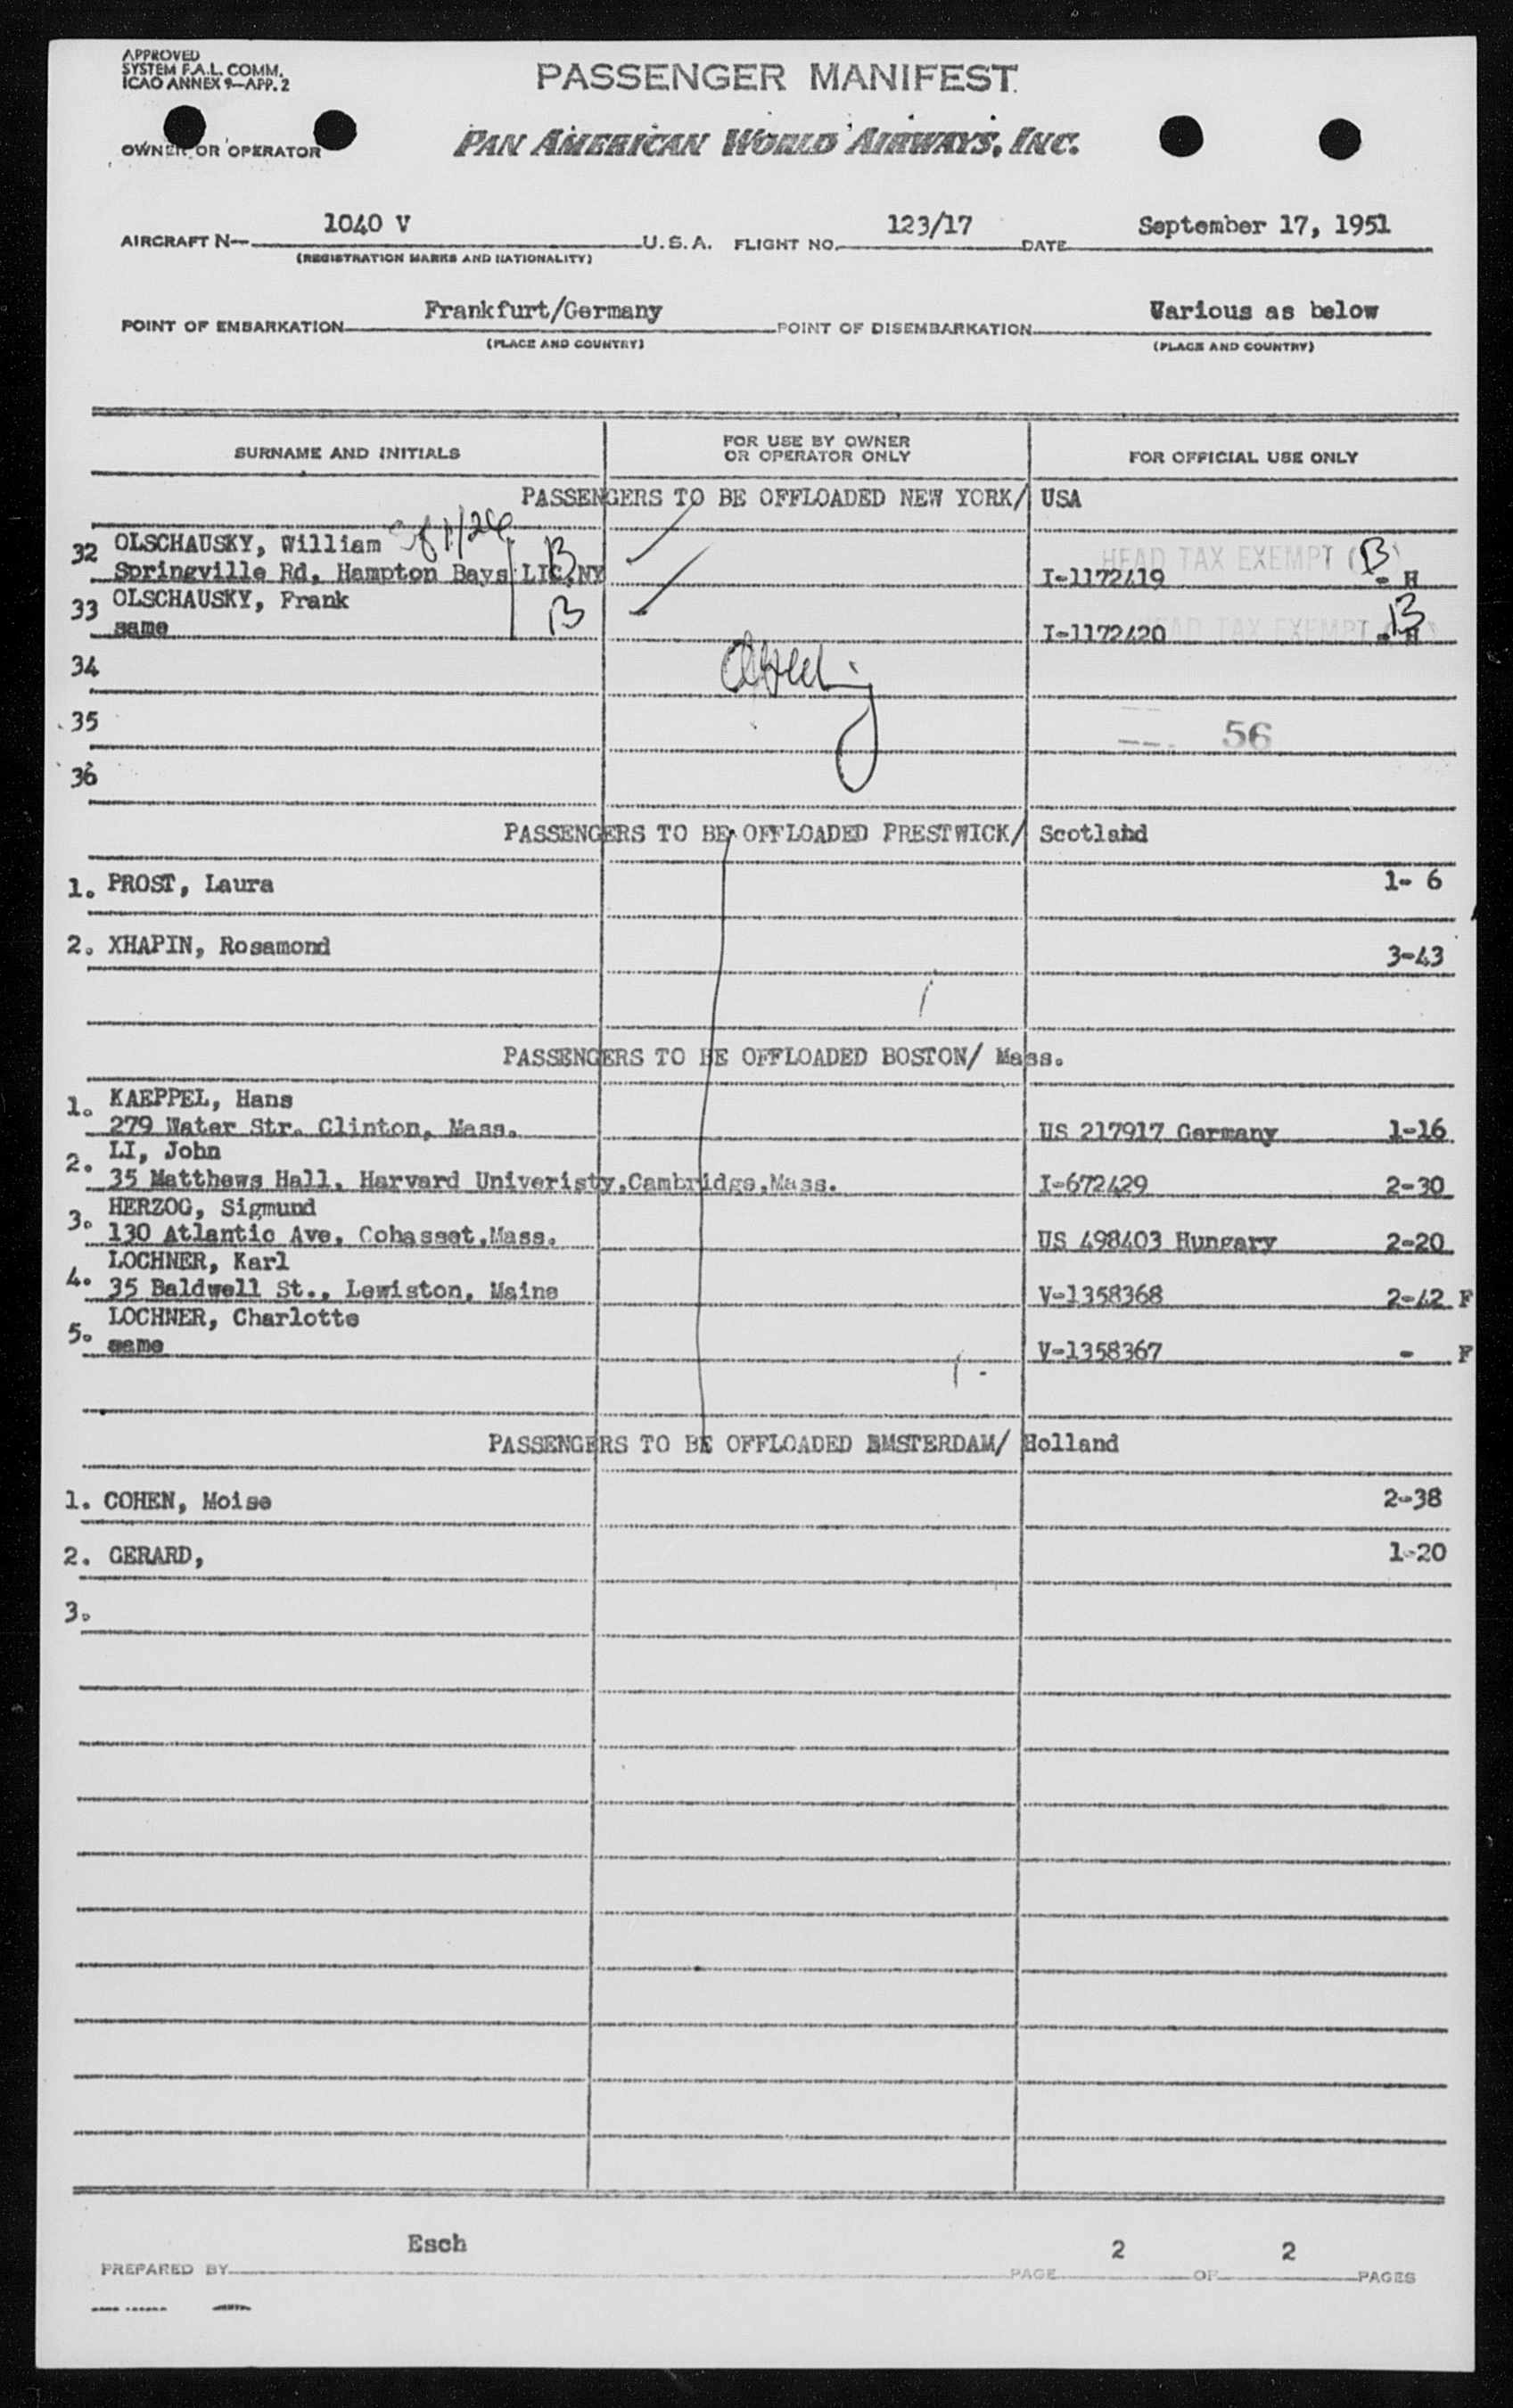 APPROVED
SYSTEM F.A.L. COMM.
ICAO ANNEX 9—APP. 2
PASSENGER MANIFEST
OWNER OR OPERATOR
PAN AMERICAN WORLD AIRWAYS, INC.
AIRCRAFT N— 1040 V U.S.A. FLIGHT NO. 123/17 DATE September 17, 1951
(REGISTRATION MARKS AND NATIONALITY)
POINT OF EMBARKATION Frankfurt/Germany POINT OF DISEMBARKATION Various as below
(PLACE AND COUNTRY) (PLACE AND COUNTRY)
SURNAME AND INITIALS FOR USE BY OWNER OR OPERATOR ONLY FOR OFFICIAL USE ONLY
PASSENGERS TO BE OFFLOADED NEW YORK/ USA
32 OLSCHAUSKY, William B HEAD TAX EXEMPT (B)
Springville Rd, Hampton Bays LIC, NY I-1172419 - H
33 OLSCHAUSKY, Frank B B
same I-1172420 HEAD TAX EXEMPT - H
34
35 56
36
PASSENGERS TO BE OFFLOADED PRESTWICK/ Scotland
1. PROST, Laura 1- 6
2. XHAPIN, Rosamond 3-43
PASSENGERS TO BE OFFLOADED BOSTON/ Mass.
1. KAEPPEL, Hans
279 Water Str. Clinton, Mass. US 217917 Germany 1-16
2. LI, John
35 Matthews Hall, Harvard Univeristy,Cambridge,Mass. I-672429 2-30
3. HERZOG, Sigmund
130 Atlantic Ave, Cohasset,Mass. US 498403 Hungary 2-20
LOCHNER, Karl
4. 35 Baldwell St., Lewiston, Maine V-1358368 2-42 F
LOCHNER, Charlotte
5. same V-1358367 - F
PASSENGERS TO BE OFFLOADED AMSTERDAM/ Holland
1. COHEN, Moise 2-38
2. GERARD, 1-20
3.
PREPARED BY Esch PAGE 2 OF 2 PAGES